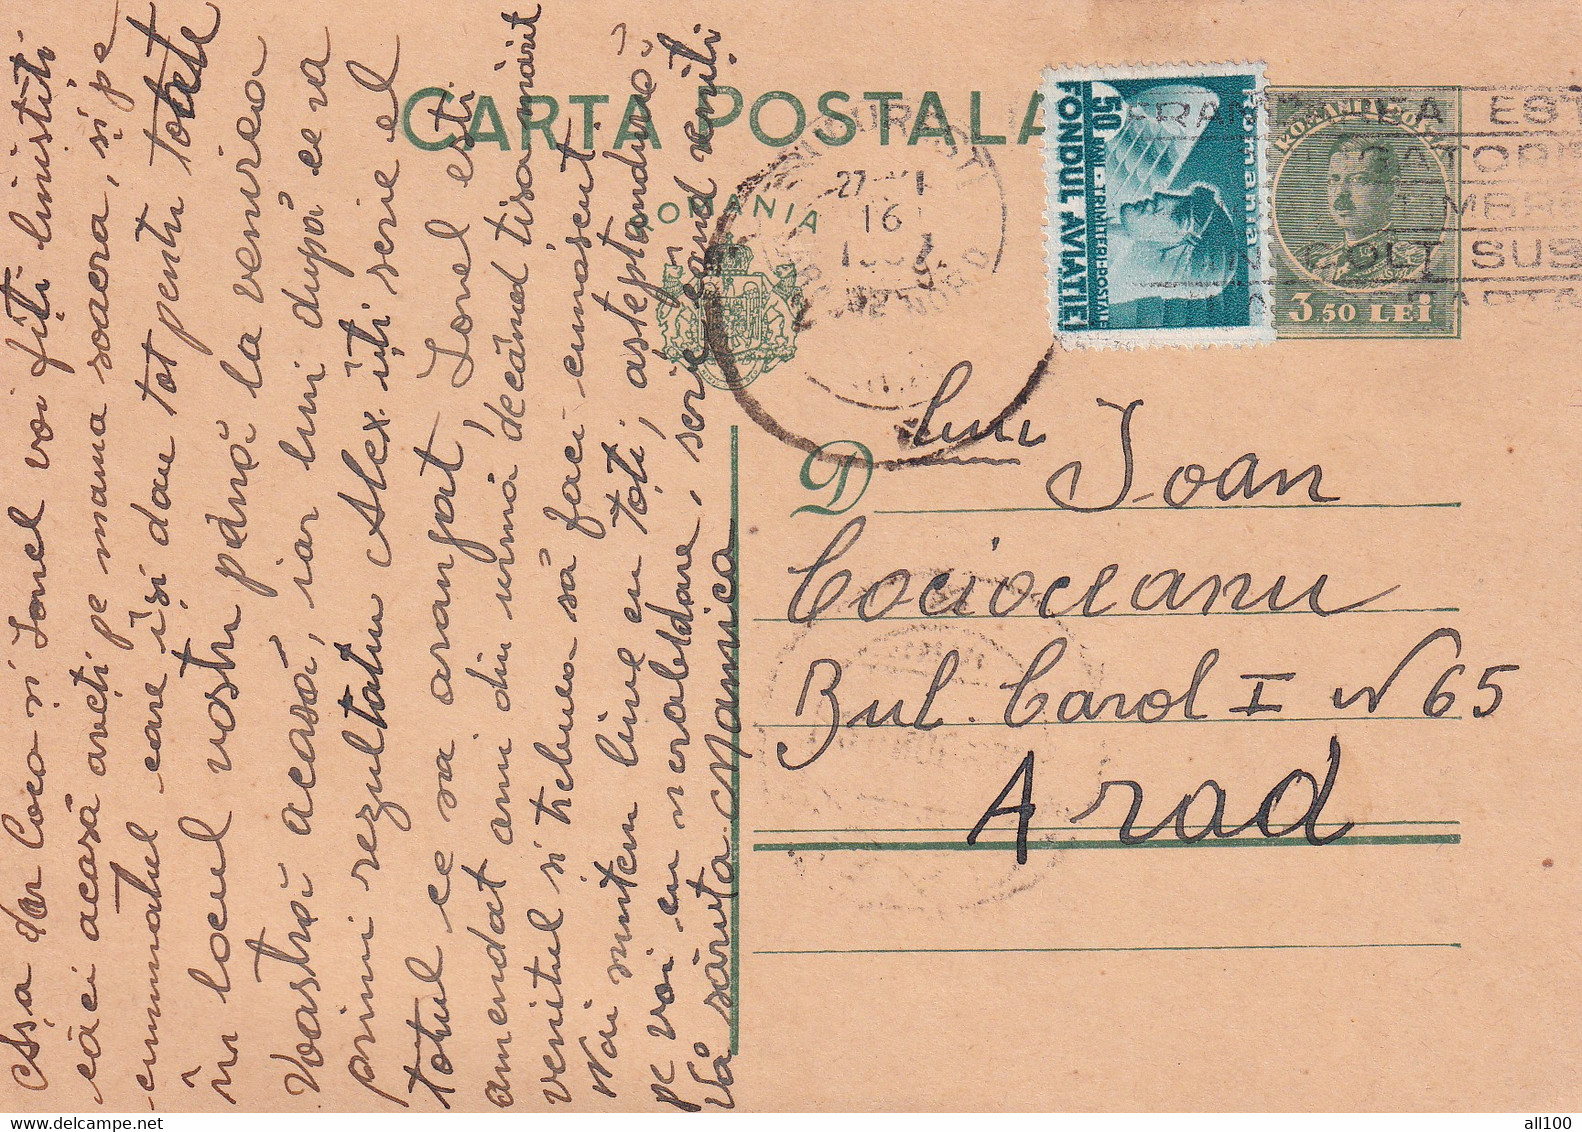 CARTA POSTALA
ROMANIA
50 BANI-TRIMITERI-POSTALE
FONDUL AVIATIEI
Romania
3,50 LEI
27
16
GARA DE NORD
IN COLT SUS
D lui Ioan
Cocioceanu
Bul. Carol I No 65
Arad
Așa dar Coco și Ionel voi fiți liniștiți
căci acasă aveți pe mama soacra, și pe
cumnatul care își dau tot pentru toate
în locul vostru până la venirea
Voastră acasă, iar luni după ce va
primi rezultatu Alex îți scrie el
totul ce sa aranjat, Ionel ești
amendat ami din urmă decând tisa mărit
venitul și trebuea să faci cunoscut.
Noi suntem bine cu toți, așteptandu-vă
pe voi cu nerabdare, scrie cand veniți
Vă săruta Mamica
all100